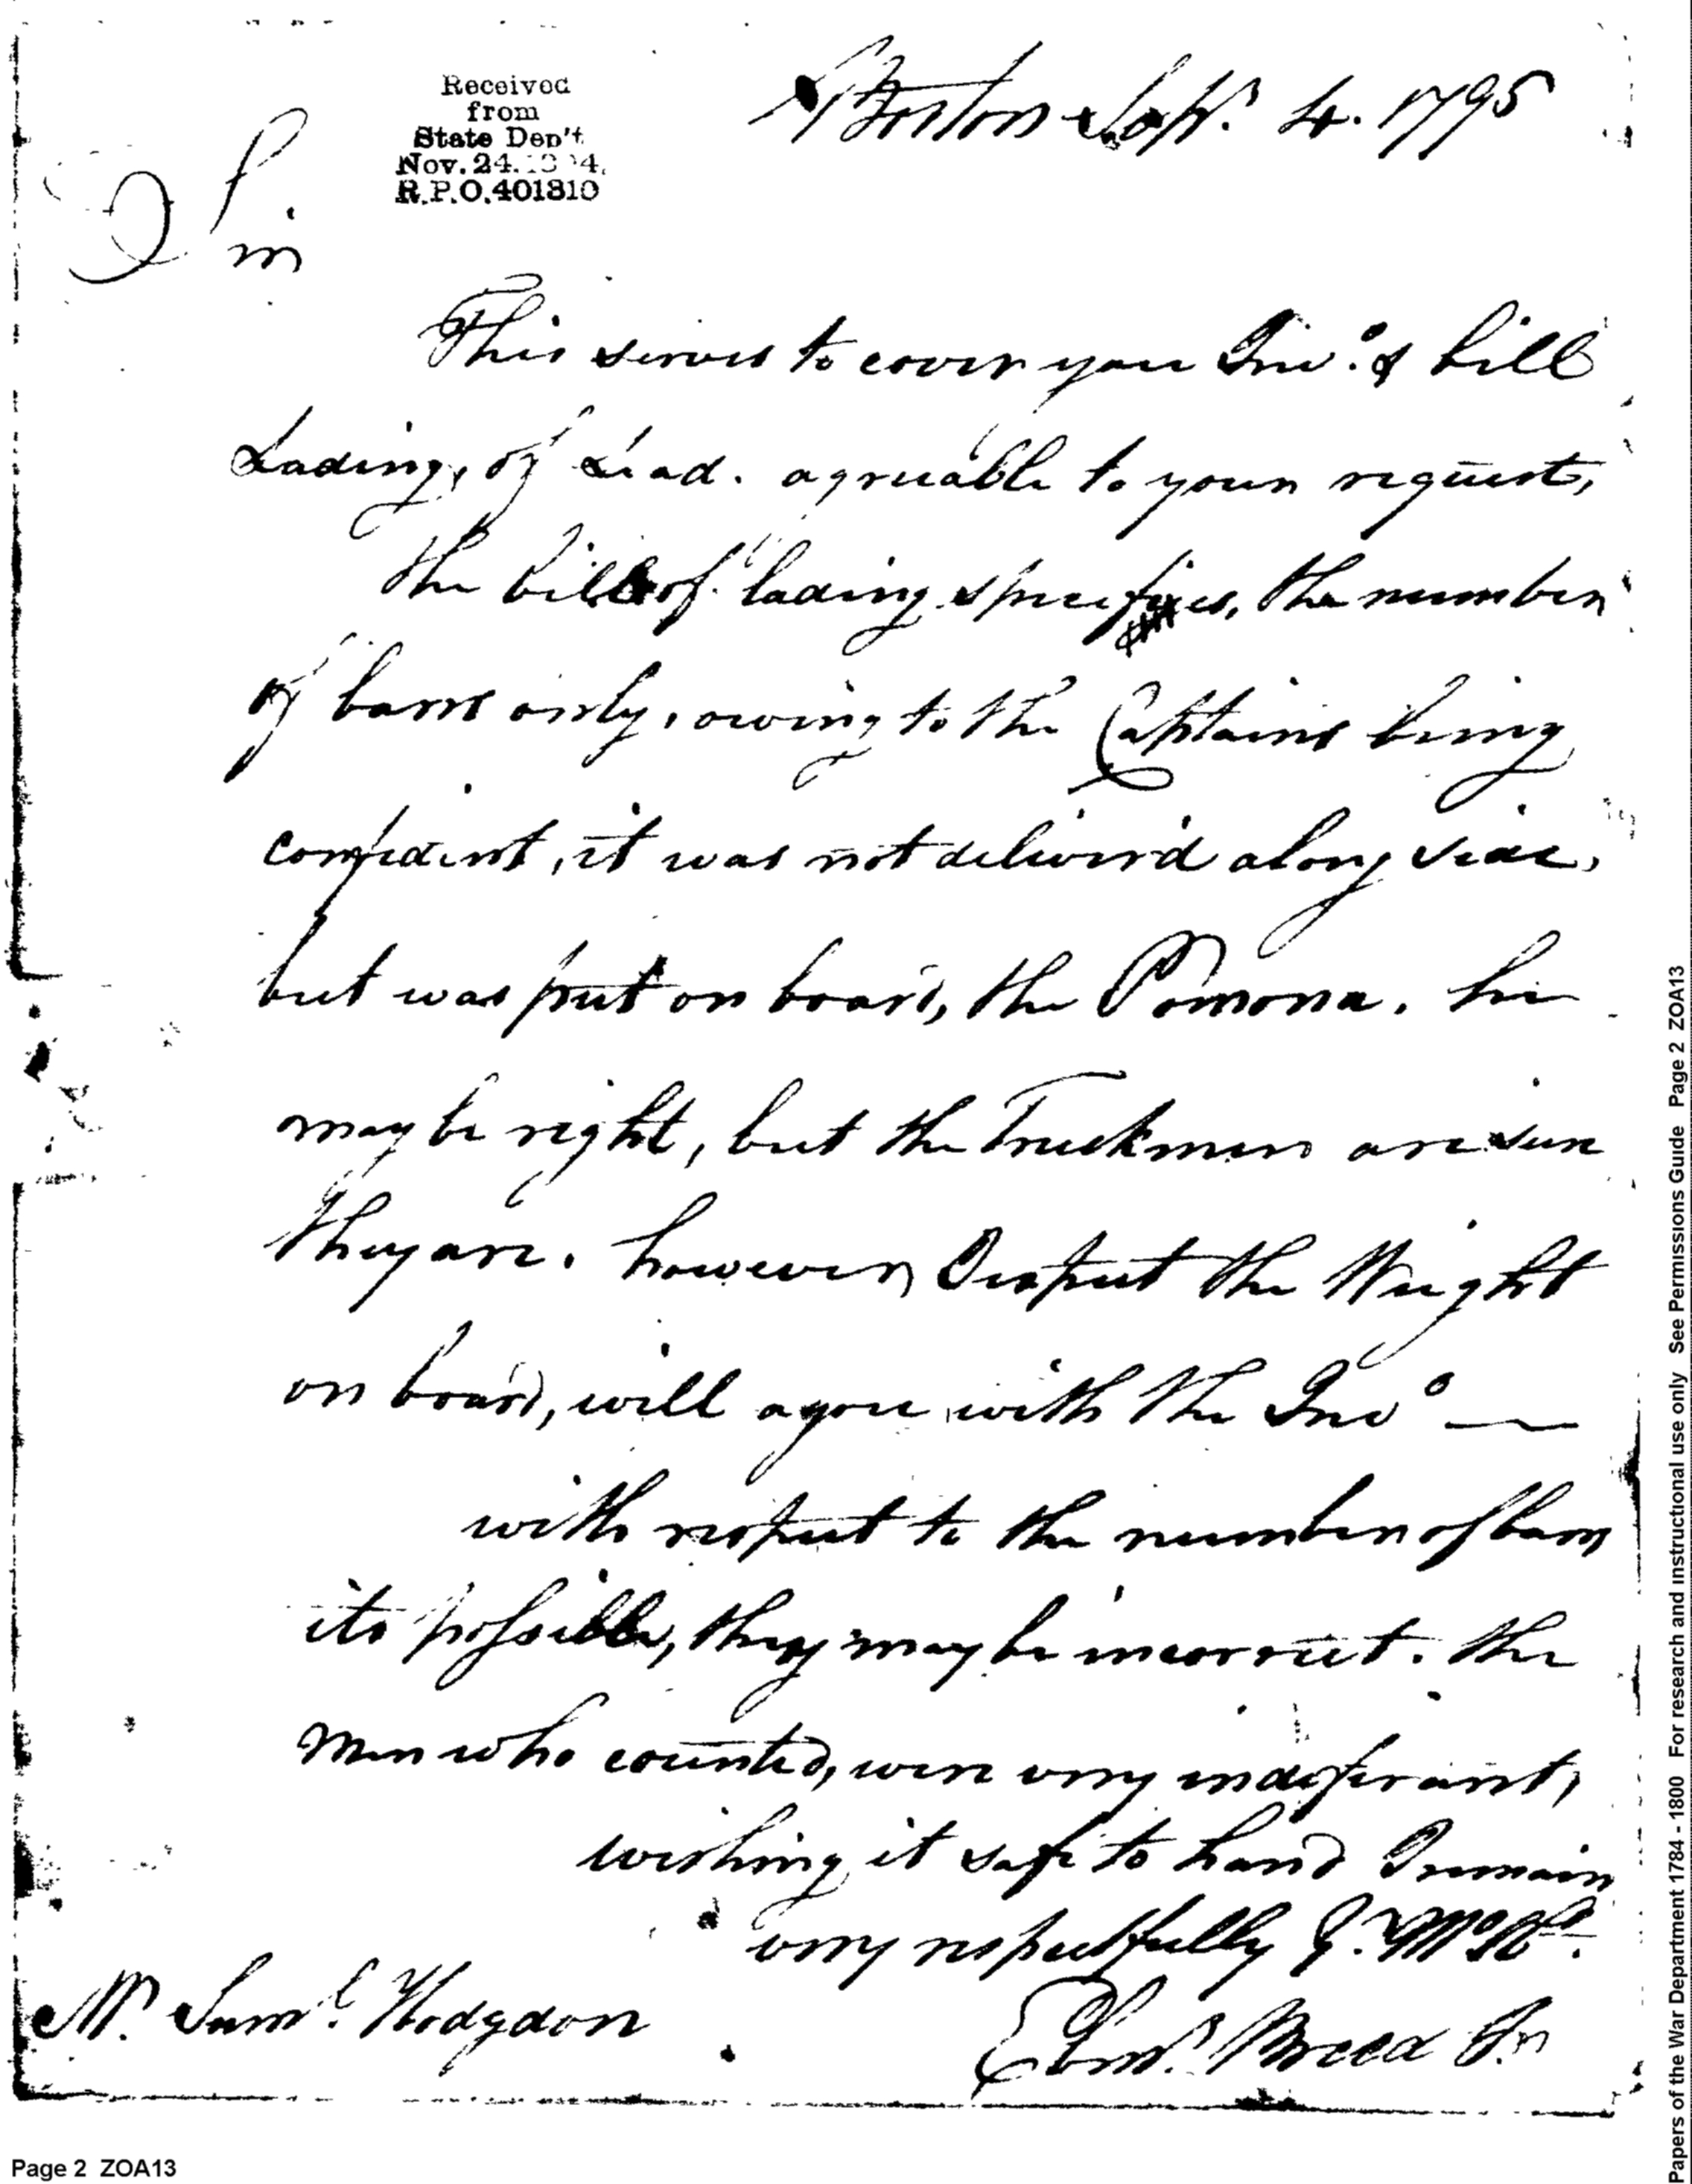 Received
from
State Dep't
Nov. 24.
R.P.O. 401810
Boston Sept. 4. 1795
Sir
This serves to cover you Invo. & bill
Lading, of Lead. agreeable to your request,
the bill of lading specifies, the number
of barrs only, owing to the Captains being
confident, it was not deliver'd along side,
but was put on board, the Pomona. he
may be right, but the Truckmen are sure
they are. however Despect the Weight
on board, will agree with the Invo
with respect to the number of bars
its possible, they may be incorrect. the
men who counted, were very indeferant,
wishing it safe to hand I remain
very respectfully Y. M° H°.
Mr. Saml. Hodgdon
Ebnr. Breed Jn
Page 2 ZOA13
Papers of the War Department 1784 - 1800 For research and instructional use only See Permissions Guide Page 2 ZOA13